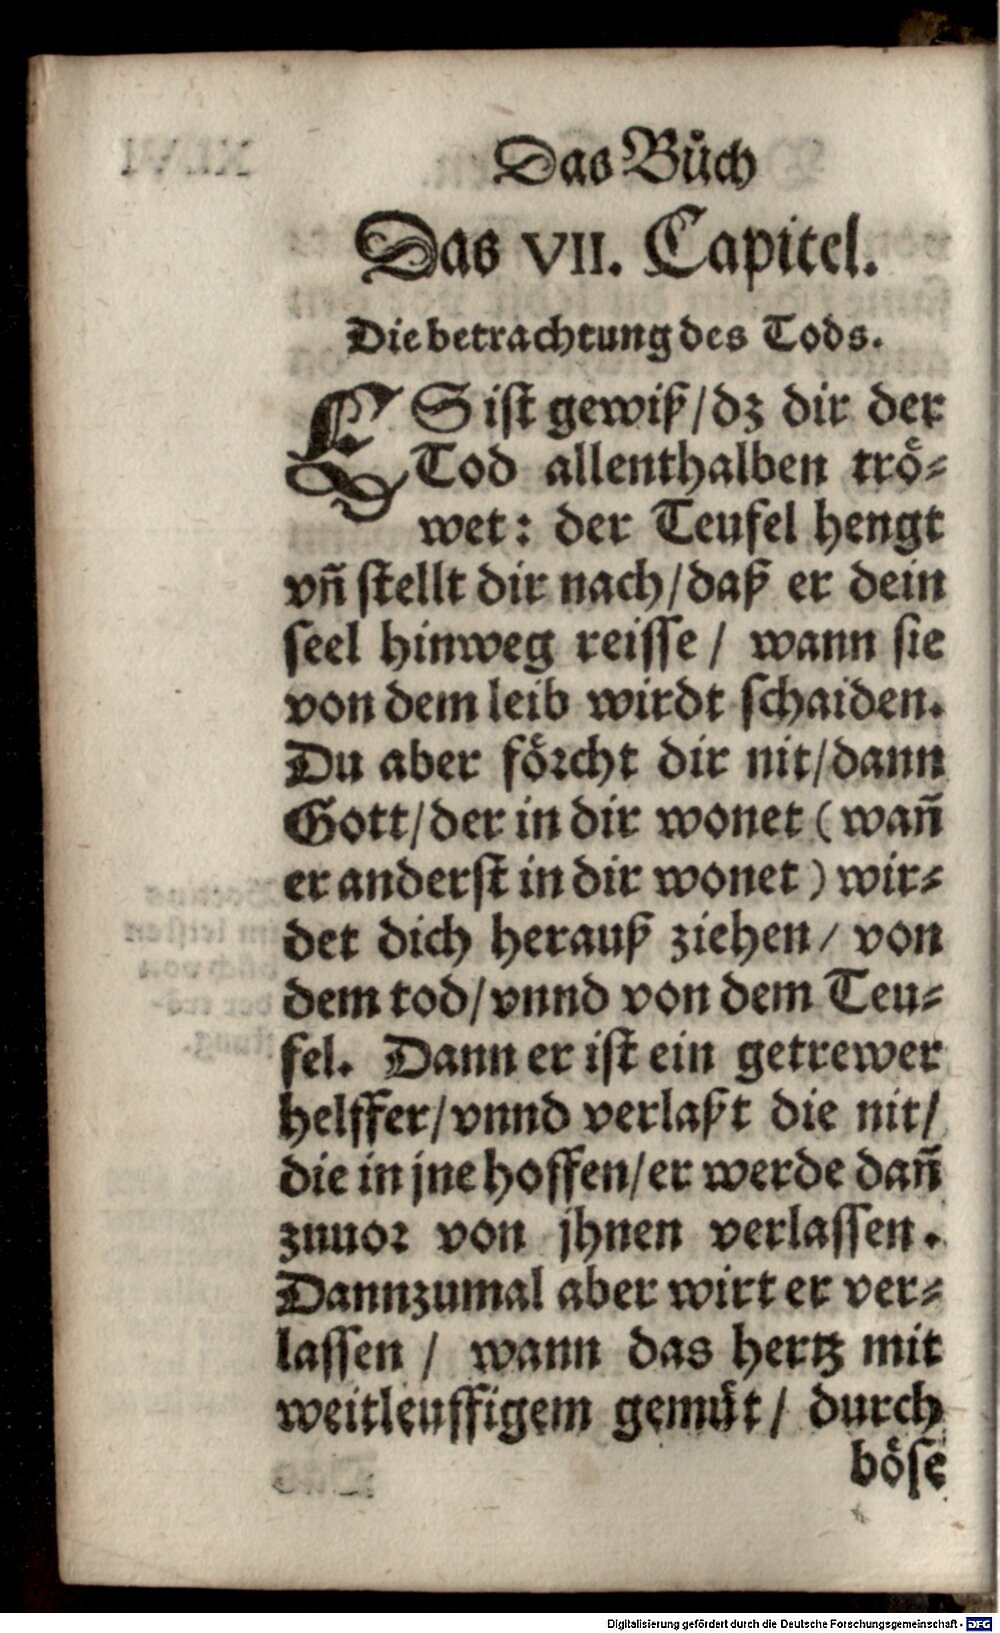 Das Bůch
Das VII. Capitel.
Die betrachtung des Tods.
ES ist gewiß/dz dir der
Tod allenthalben trö⸗
wet: der Teufel hengt
vñ stellt dir nach/daß er dein
seel hinweg reisse/ wann sie
von dem leib wirdt schaiden.
Du aber förcht dir nit/dann
Gott/der in dir wonet (wañ
er anderst in dir wonet) wir⸗
det dich herauß ziehen/ von
dem tod/vnnd von dem Teu⸗
fel. Dann er ist ein getrewer
helffer/vnnd verlaßt die nit/
die in jne hoffen/er werde dañ
zuuor von jhnen verlassen.
Dannzumal aber wirt er ver⸗
lassen/ wann das hertz mit
weitleuffigem gemüt/ durch
böse
Digitalisierung gefördert durch die Deutsche Forschungsgemeinschaft - DFG